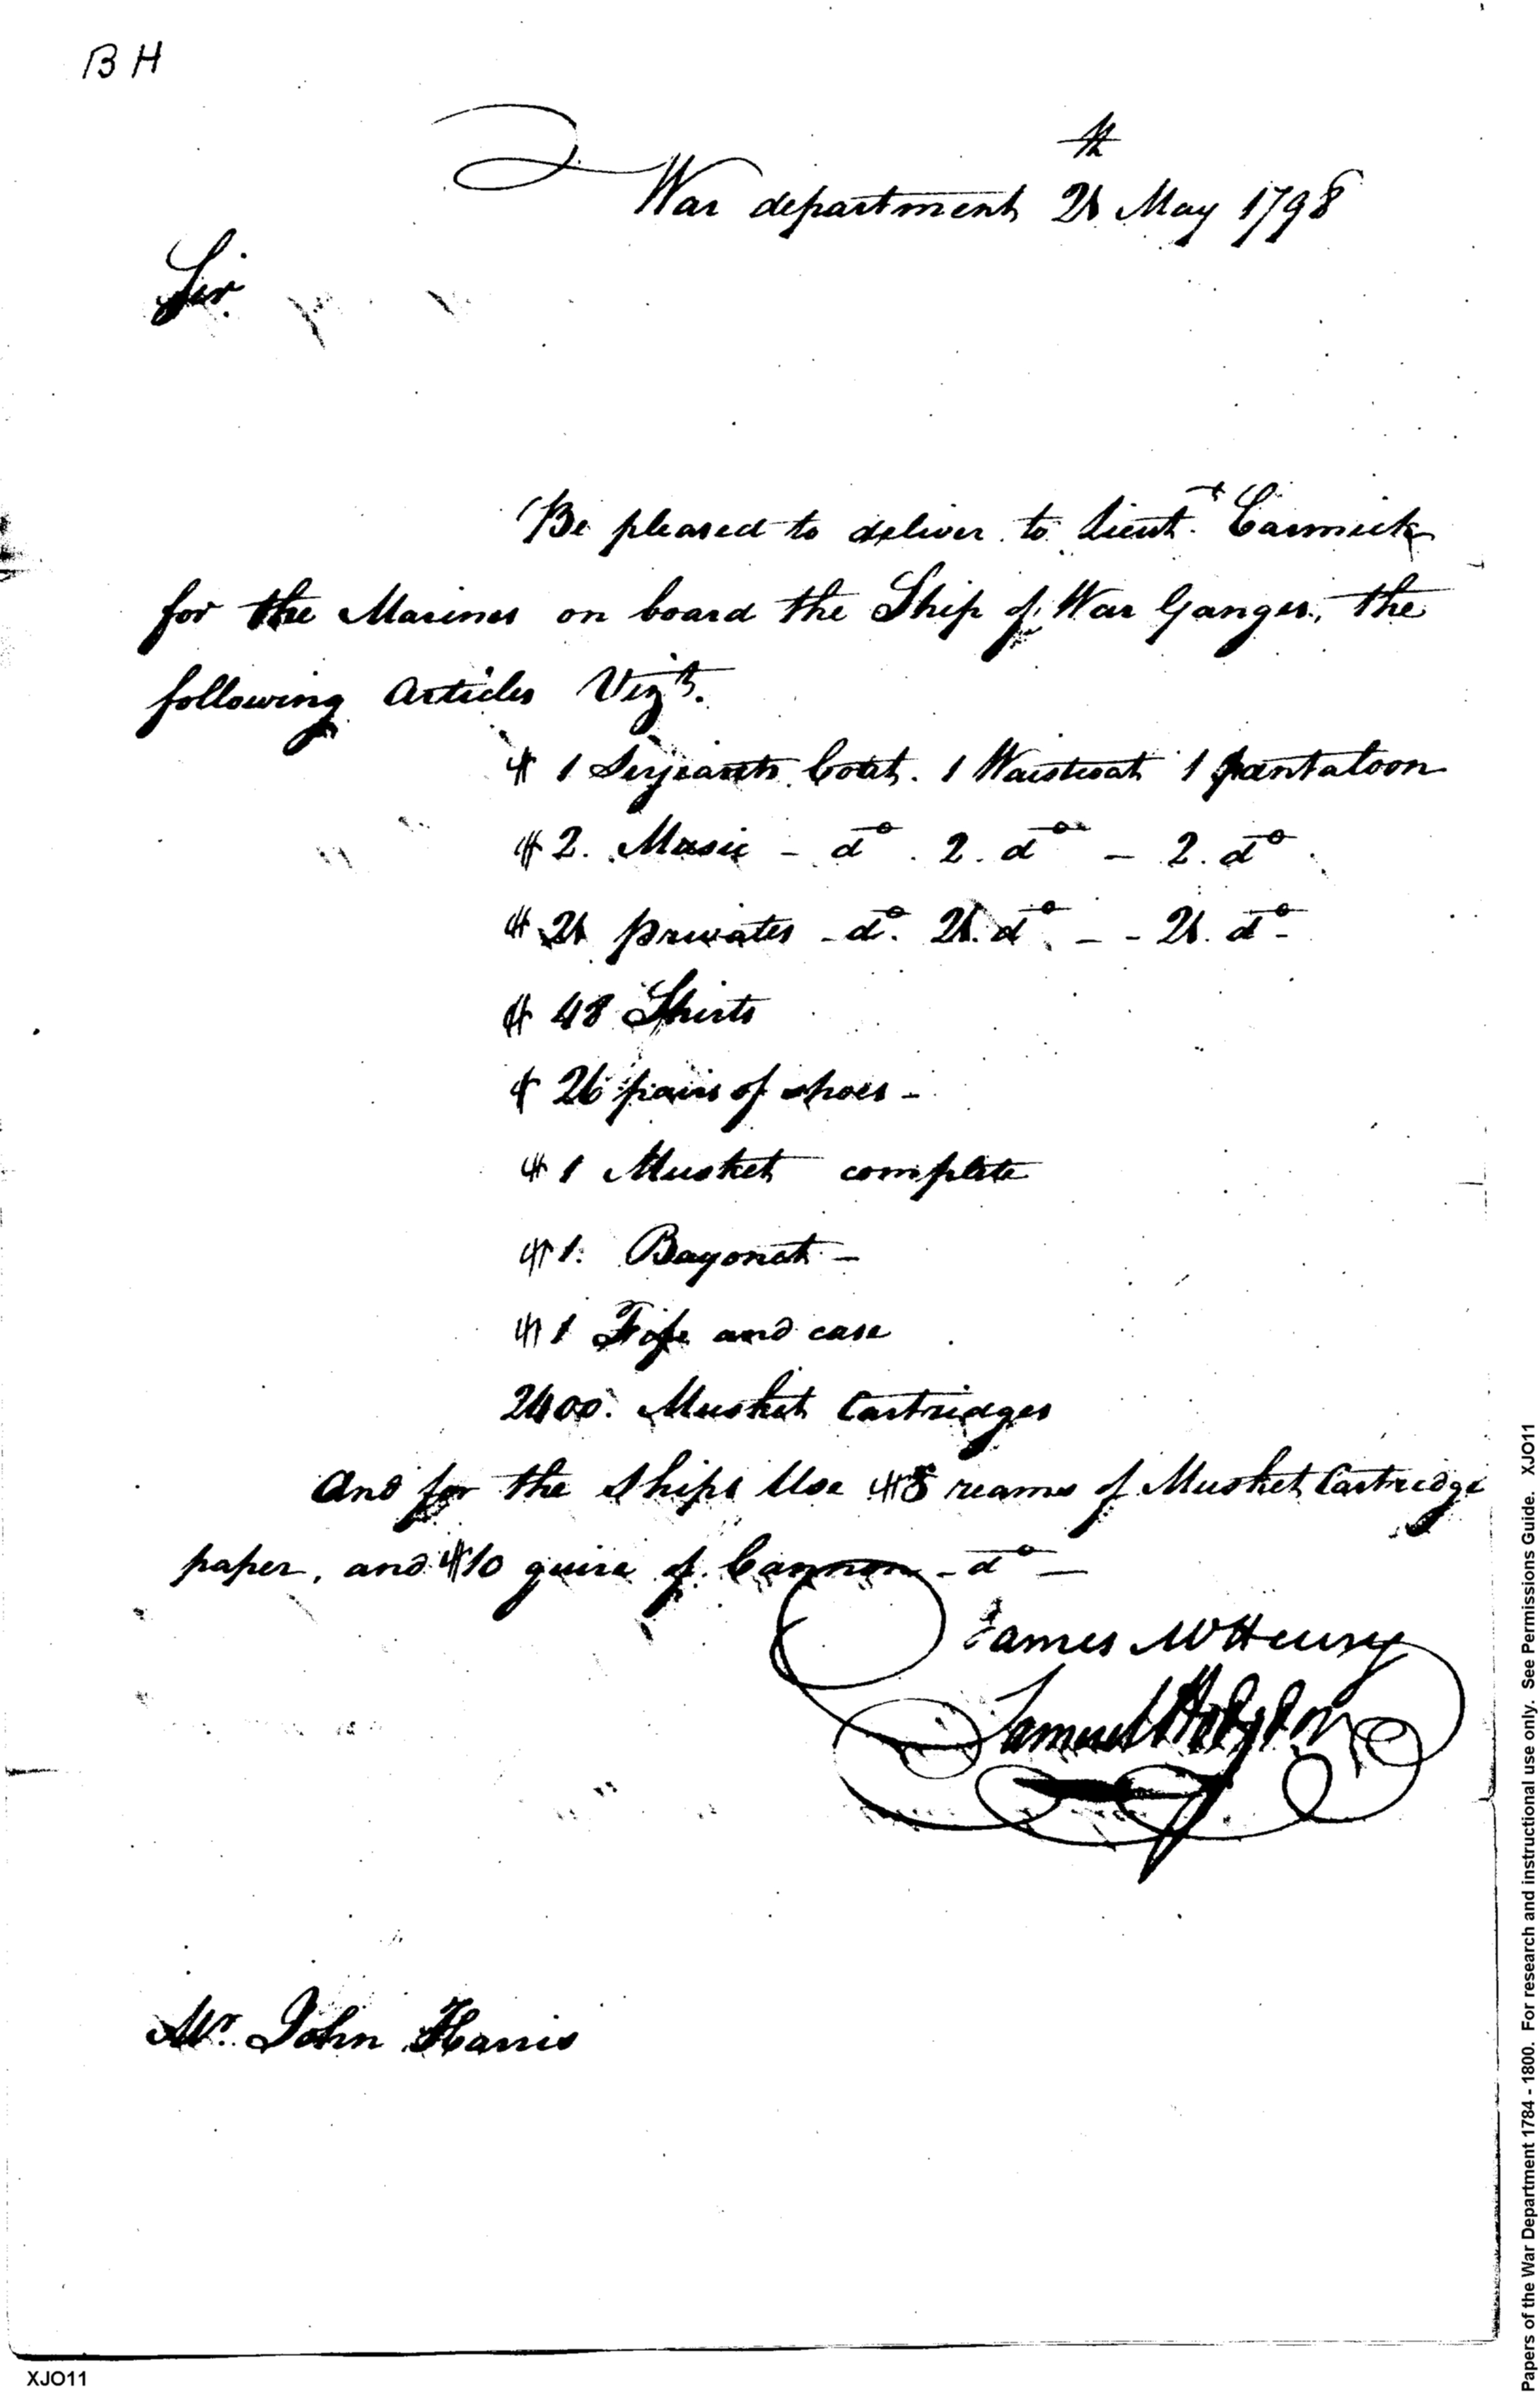 BH
War department 24th May 1798
Sir
Be pleased to deliver to Lieut. Carmick
for the Marines on board the Ship of War Ganges, the
following Articles Vizt.
# 1 Serjeants Coat. 1 Waistcoat 1 pantaloon
# 2. Music - do. 2. do - 2. do
# 24 privates - do. 24. do. - - 24. do -
# 48 Shirts
# 26 pairs of shoes -
# 1 Musket complete
# 1. Bayonet -
# 1 Fife and case
2400. Musket Cartridges
And for the Ships Use # 8 reams of Musket Cartridge
paper, and # 10 quire of Cannon - do -
James McHenry
Samuel Hodgdon
Mr. John Harris
XJO11
Papers of the War Department 1784 - 1800. For research and instructional use only. See Permissions Guide. XJO11